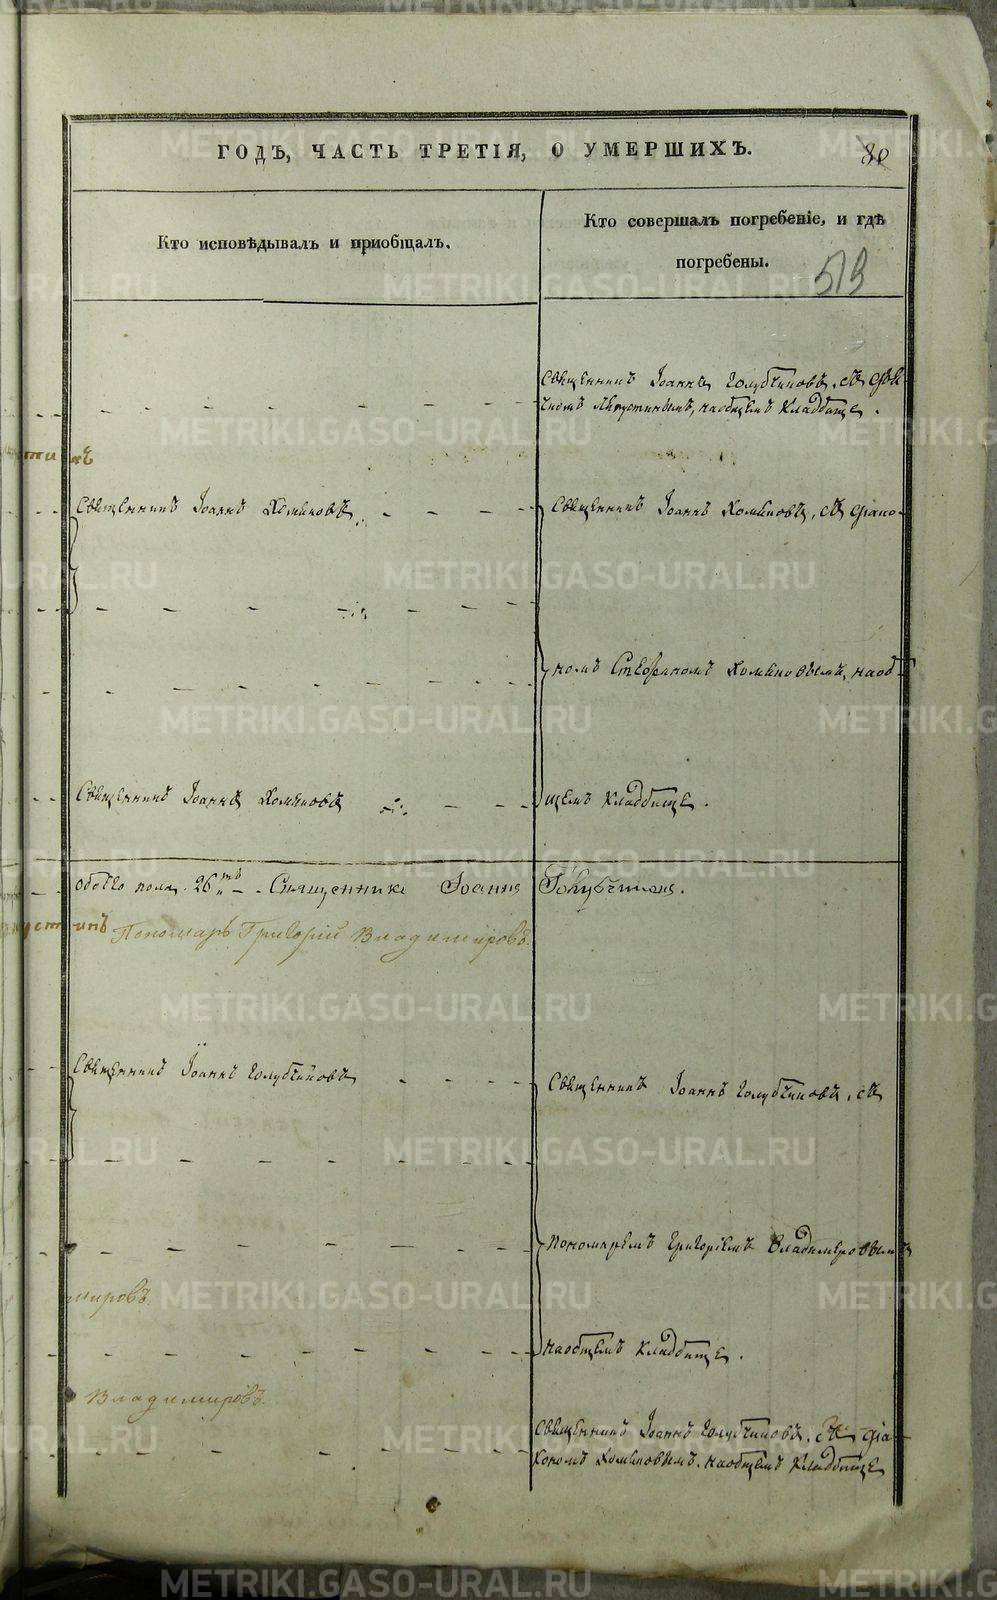 ГОДЪ, ЧАСТЬ ТРЕТІЯ, О УМЕРШИХЪ.
80
Кто исповѣдывалъ и пріобщалъ.
Кто совершалъ погребеніе, и гдѣ
погребены.
519
Священникъ Іоаннъ Голубчиковъ, съ
наобщемъ Кладбище.
Священникъ Іоаннъ Хомяковъ
Священникъ Іоаннъ Хомяковъ, съ діако-
номъ Стефаномъ Хомяковымъ, наоб-
Священникъ Іоаннъ Хомяковъ
щемъ Кладбище.
обоего пола 26ть Священникъ Іоаннъ Голубчиковъ.
Пономарь Григорій Владимировъ
Священникъ Іоаннъ Голубчиковъ
Священникъ Іоаннъ Голубчиковъ, съ
Пономаремъ Григоріемъ Владимеровымъ
мировъ
наобщемъ Кладбище.
Владимировъ
Священникъ Іоаннъ Голубчиковъ, съ діа-
кономъ Хомяковымъ, наобщемъ Кладбище
METRIKI.GASO-URAL.RU